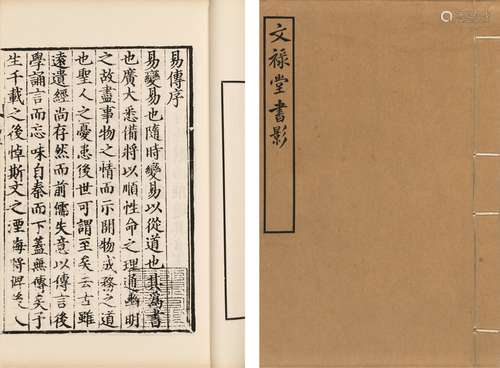 易傳序
易變易也隨時變易以從道也其為書
也廣大悉備將以順性命之理通幽明
之故盡事物之情而示開物成務之道
也聖人之憂患後世可謂至矣去古雖
遠遺經尚存然而前儒失意以傳言後
學誦言而忘味自秦而下蓋無傳矣予
生千載之後悼斯文之湮晦將俾
文祿堂書影